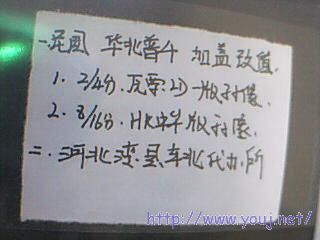 一民国 华北普4 加盖改值.
1. 2/4分. 瓦 一版封像.
2. 8/16分. HK中华版封像.
二. 河北滦县车北代办所
http://www.youj.net/